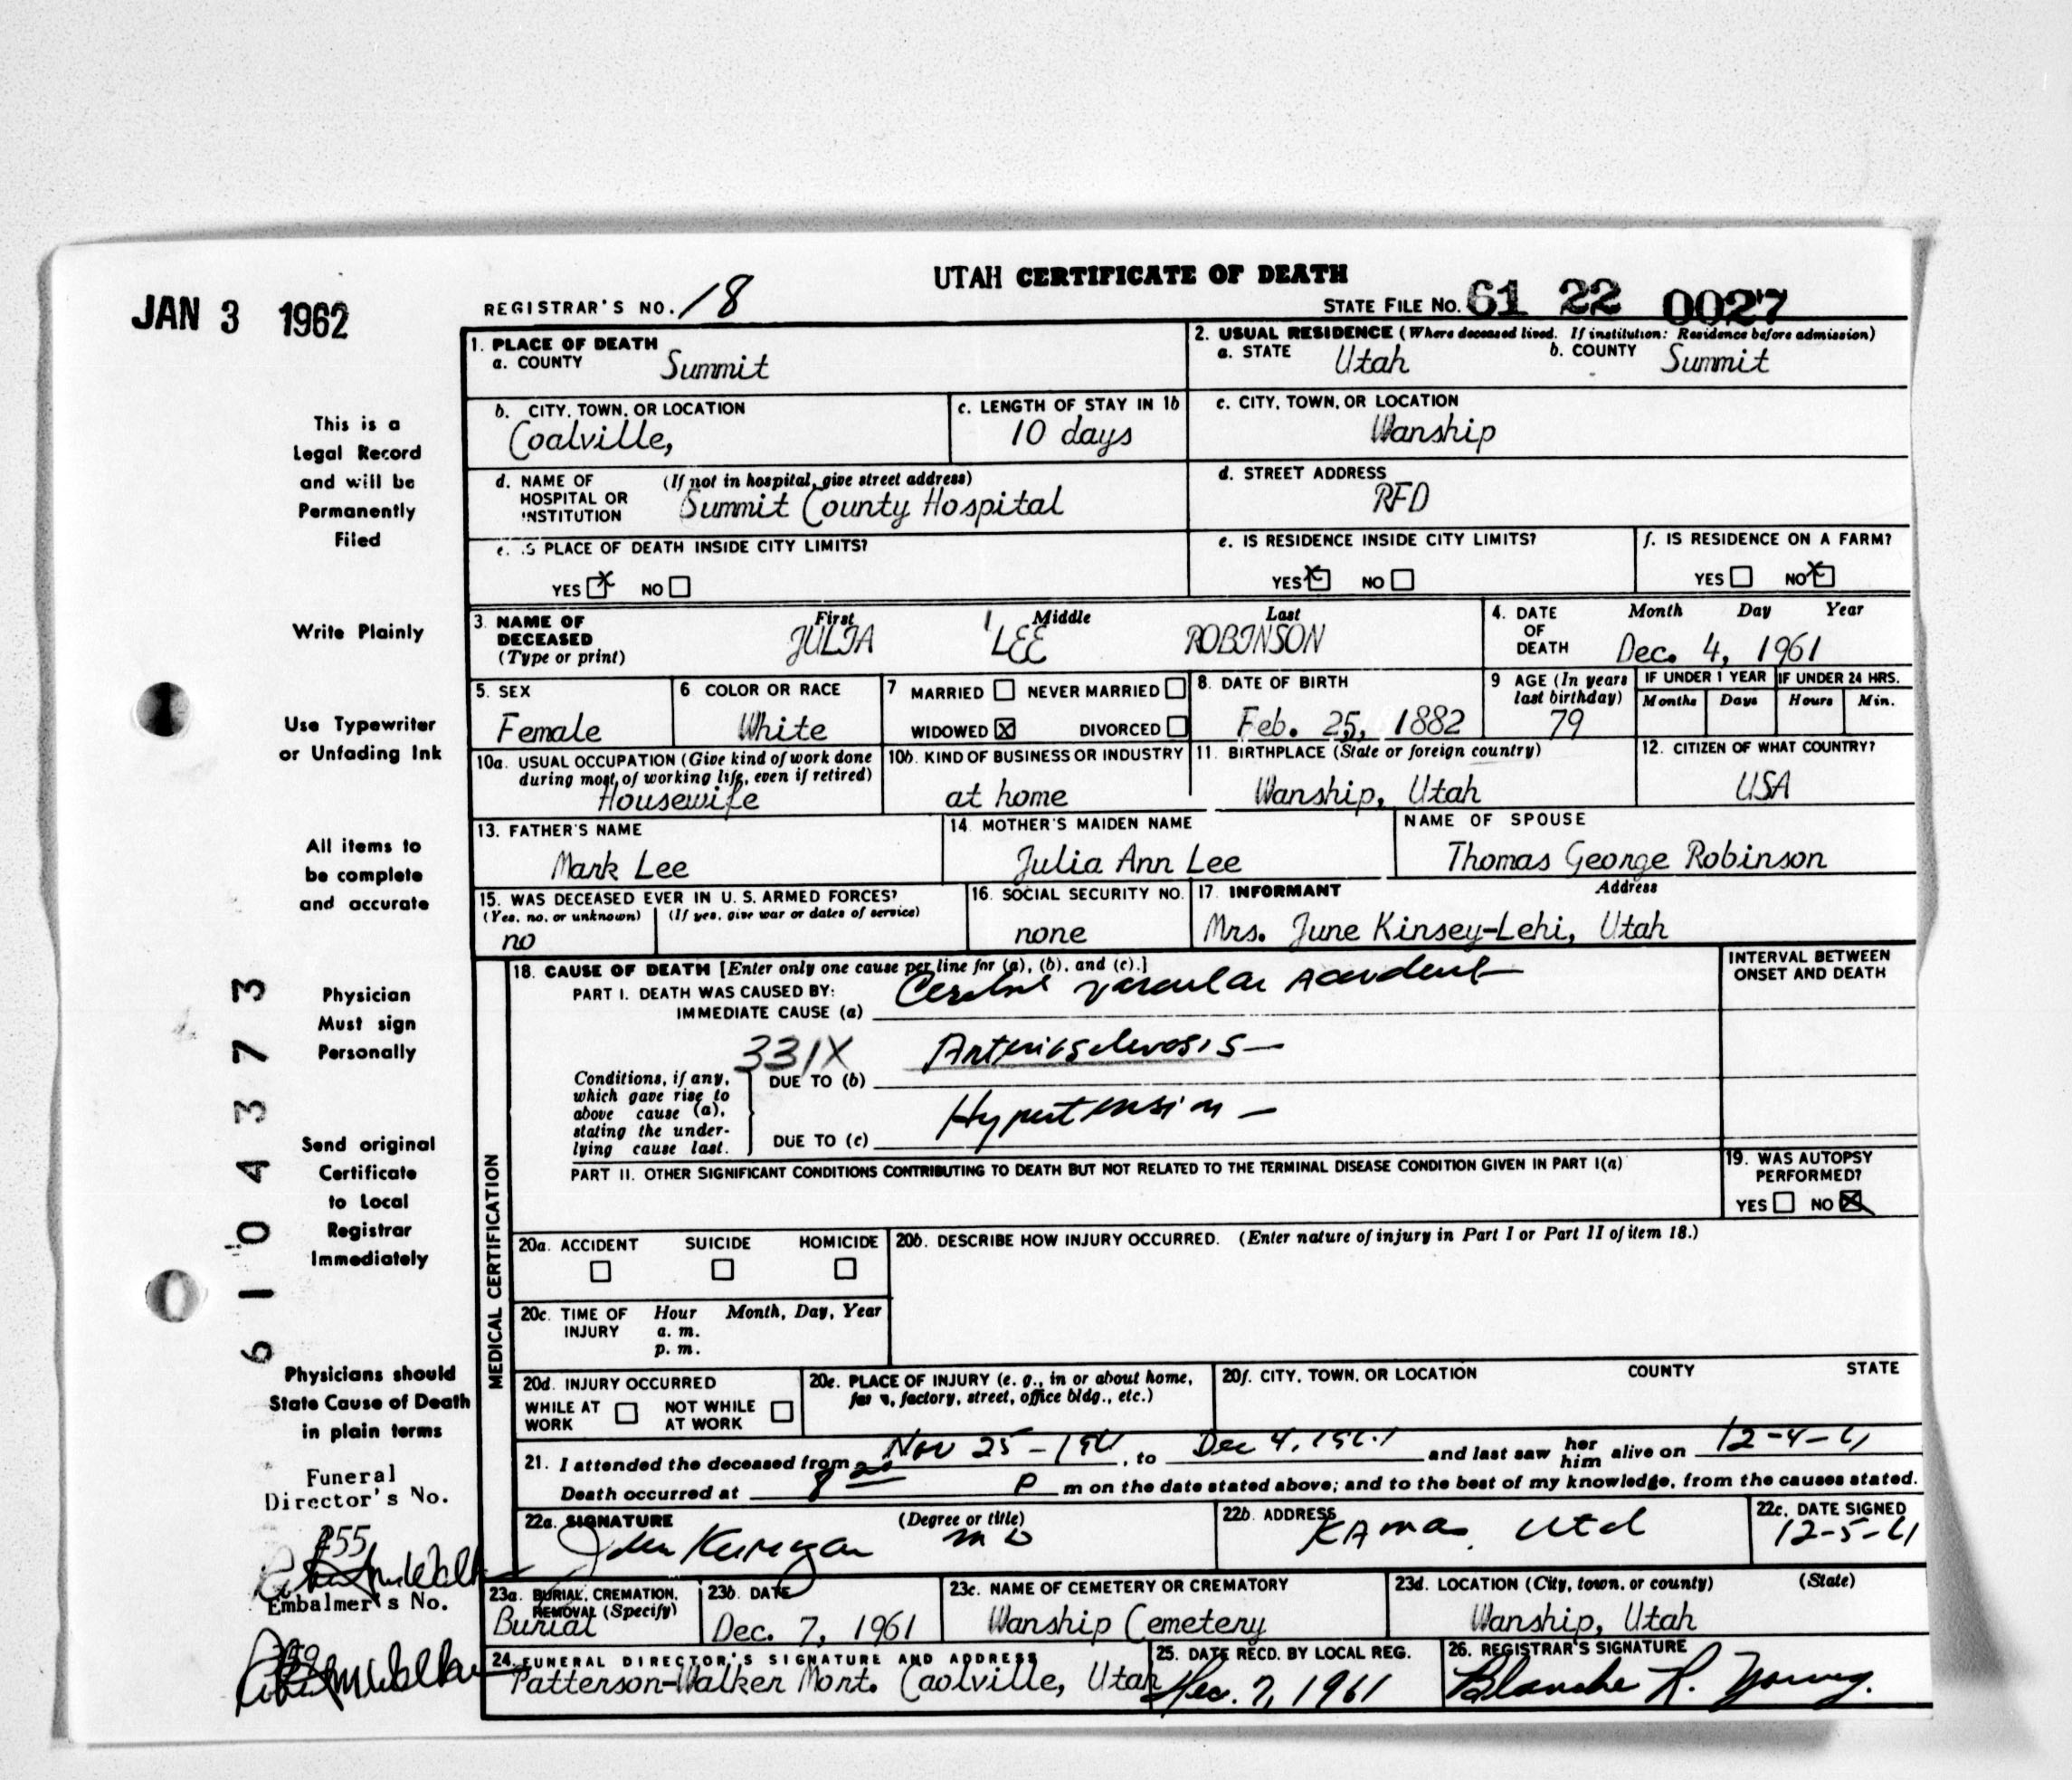 UTAH CERTIFICATE OF DEATH
JAN 3 1962
REGISTRAR'S NO. 18
STATE FILE NO. 61 22 0027
1. PLACE OF DEATH
a. COUNTY Summit
2. USUAL RESIDENCE (Where deceased lived. If institution: Residence before admission)
a. STATE Utah b. COUNTY Summit
b. CITY, TOWN, OR LOCATION
Coalville,
c. LENGTH OF STAY IN 1b
10 days
c. CITY, TOWN, OR LOCATION
Wanship
d. NAME OF HOSPITAL OR INSTITUTION (If not in hospital, give street address)
Summit County Hospital
d. STREET ADDRESS
RFD
e. IS PLACE OF DEATH INSIDE CITY LIMITS?
YES x NO
e. IS RESIDENCE INSIDE CITY LIMITS?
YES x NO
f. IS RESIDENCE ON A FARM?
YES NO x
3. NAME OF DECEASED (Type or print)
First Middle Last
JULIA LEE ROBINSON
4. DATE OF DEATH Month Day Year
Dec. 4, 1961
5. SEX
Female
6 COLOR OR RACE
White
7 MARRIED NEVER MARRIED
WIDOWED x DIVORCED
8. DATE OF BIRTH
Feb. 25, 1882
9 AGE (In years last birthday)
79
IF UNDER 1 YEAR
Months Days
IF UNDER 24 HRS.
Hours Min.
10a. USUAL OCCUPATION (Give kind of work done during most of working life, even if retired)
Housewife
10b. KIND OF BUSINESS OR INDUSTRY
at home
11. BIRTHPLACE (State or foreign country)
Wanship, Utah
12. CITIZEN OF WHAT COUNTRY?
USA
13. FATHER'S NAME
Mark Lee
14. MOTHER'S MAIDEN NAME
Julia Ann Lee
NAME OF SPOUSE
Thomas George Robinson
15. WAS DECEASED EVER IN U. S. ARMED FORCES?
(Yes, no, or unknown) (If yes, give war or dates of service)
no
16. SOCIAL SECURITY NO.
none
17. INFORMANT Address
Mrs. June Kinsey-Lehi, Utah
MEDICAL CERTIFICATION
18. CAUSE OF DEATH [Enter only one cause per line for (a), (b), and (c).]
INTERVAL BETWEEN ONSET AND DEATH
PART I. DEATH WAS CAUSED BY:
IMMEDIATE CAUSE (a) Cerebral vascular Accident
331X
Conditions, if any, which gave rise to above cause (a), stating the underlying cause last.
DUE TO (b) Arteriosclerosis -
DUE TO (c) Hypertension -
PART II. OTHER SIGNIFICANT CONDITIONS CONTRIBUTING TO DEATH BUT NOT RELATED TO THE TERMINAL DISEASE CONDITION GIVEN IN PART I(a)
19. WAS AUTOPSY PERFORMED?
YES NO x
20a. ACCIDENT SUICIDE HOMICIDE
20b. DESCRIBE HOW INJURY OCCURRED. (Enter nature of injury in Part I or Part II of item 18.)
20c. TIME OF INJURY Hour Month, Day, Year
a. m.
p. m.
20d. INJURY OCCURRED
WHILE AT WORK NOT WHILE AT WORK
20e. PLACE OF INJURY (e. g., in or about home, farm, factory, street, office bldg., etc.)
20f. CITY, TOWN, OR LOCATION COUNTY STATE
21. I attended the deceased from Nov 25 - 1961, to Dec 4, 1961 and last saw her him alive on 12-4-61
Death occurred at 8 P m on the date stated above; and to the best of my knowledge, from the causes stated.
22a. SIGNATURE (Degree or title)
MD
22b. ADDRESS
KAmas, Utah
22c. DATE SIGNED
12-5-61
23a. BURIAL, CREMATION, REMOVAL (Specify)
Burial
23b. DATE
Dec. 7, 1961
23c. NAME OF CEMETERY OR CREMATORY
Wanship Cemetery
23d. LOCATION (City, town, or county) (State)
Wanship, Utah
24. FUNERAL DIRECTOR'S SIGNATURE AND ADDRESS
Patterson-Walker Mort. Caolville, Utah
25. DATE RECD. BY LOCAL REG.
Dec. 7, 1961
26. REGISTRAR'S SIGNATURE
Blanche R. Young.
This is a
Legal Record
and will be
Permanently
Filed
Write Plainly
Use Typewriter
or Unfading Ink
All items to
be complete
and accurate
Physician
Must sign
Personally
Send original
Certificate
to Local
Registrar
Immediately
Physicians should
State Cause of Death
in plain terms
Funeral
Director's No.
Embalmer's No.
61043773